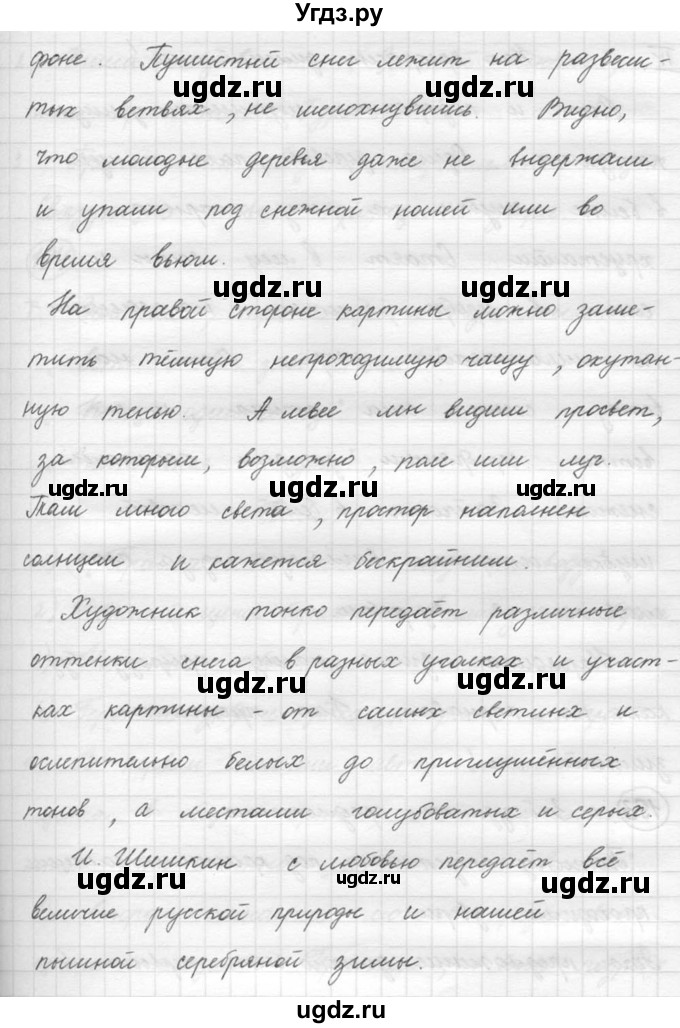 Угдз.ру
фоне. Пушистый снег лежит на развеси-
ugdz.ru ugdz.ru
тых ветвях, не шелохнувшись. Видно,
что молодые деревья даже не выдержали
и упали под снежной ношей или во
время вьюги.
ugdz.ru ugdz.ru
На правой стороне картины можно заме-
тить тёмную непроходимую чащу, окутан-
ную тенью. А левее мы видим просвет,
за которым, возможно, поле или луг.
ugdz.ru ugdz.ru ugdz.ru
Там много света, простор наполнен
солнцем и кажется бескрайним.
Художник тонко передаёт различные
оттенки снега в разных уголках и участ-
ugdz.ru ugdz.ru
ках картины - от самых светлых и
ослепительно белых до приглушённых
тонов, а местами голубоватых и серых.
И. Шишкин с любовью передаёт всё
ugdz.ru ugdz.ru ugdz.ru
величие русской природы и нашей
пышной серебряной зимы.
ugdz.ru